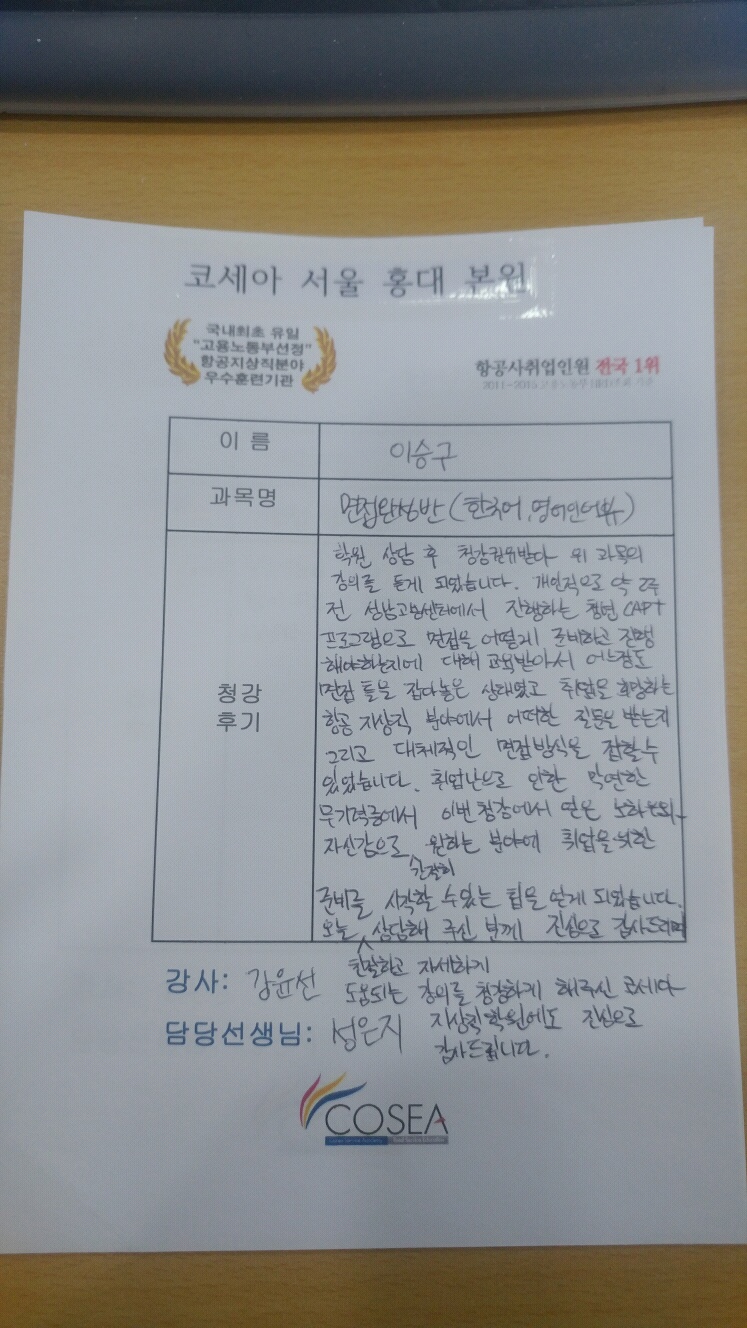 코세아 서울 홍대 본원
국내최초 유일
"고용노동부선정"
항공지상직분야
우수훈련기관
항공사취업인원 전국 1위
이 름
이승구
과목명
면접완성반 (한국어, 영어인터뷰)
청강
후기
학원 상담 후 청강권유받다 위 과목의
강의를 듣게 되었습니다. 개인적으로 약 2주
전 성남고용센터에서 진행하는 청년 CAP+
프로그램으로 면접을 어떻게 준비하고 진행
해야하는지에 대해 교육받아서 어느정도
면접 틀을 잡아놓은 상태였고 취업을 희망하는
항공 지상직 분야에서 어떠한 질문을 받는지
그리고 대체적인 면접방식을 접할 수
있었습니다. 취업난으로 인한 막연한
무기력증에서 이번 청강에서 얻은 노하우와
자신감으로 원하는 분야에 취업을 위한
간절히
준비를 시작할 수 있는 팁을 얻게 되었습니다.
오늘 상담해 주신 분께 진심으로 감사드리며
친절하고 자세하게
도움되는 강의를 청강하게 해주신 코세아
지상직학원에도 진심으로
감사드립니다.
강사: 강윤선
담당선생님: 성은지
COSEA